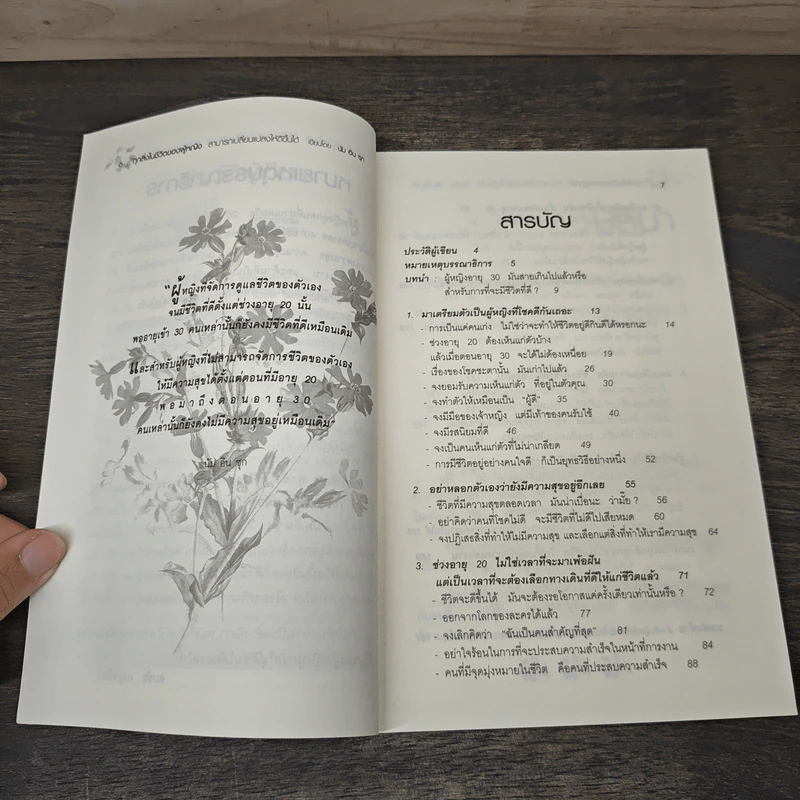 6 ทุกสิ่งในชีวิตของผู้หญิง สามารถเปลี่ยนแปลงให้ดีขึ้นได้ เขียนโดย : นัม อิน ซุก
"ผู้หญิงที่จัดการดูแลชีวิตของตัวเอง
จนมีชีวิตที่ดีตั้งแต่ช่วงอายุ 20 นั้น
พออายุเข้า 30 คนเหล่านั้นก็ยังคงมีชีวิตที่ดีเหมือนเดิม
และสำหรับผู้หญิงที่ไม่สามารถจัดการชีวิตของตัวเอง
ให้มีความสุขได้ตั้งแต่ตอนที่มีอายุ 20
พอมาถึงตอนอายุ 30
คนเหล่านั้นก็ยังคงไม่มีความสุขอยู่เหมือนเดิม"
นัม อิน ซุก
7
สารบัญ
ประวัติผู้เขียน 4
หมายเหตุบรรณาธิการ 5
บทนำ : ผู้หญิงอายุ 30 มันสายเกินไปแล้วหรือ
สำหรับการที่จะมีชีวิตที่ดี ? 9
1. มาเตรียมตัวเป็นผู้หญิงที่โชคดีกันเถอะ 13
- การเป็นแค่คนเก่ง ไม่ใช่ว่าจะทำให้ชีวิตอยู่ดีกินดีได้หรอกนะ 14
- ช่วงอายุ 20 ต้องเห็นแก่ตัวบ้าง
แล้วเมื่อตอนอายุ 30 จะได้ไม่ต้องเหนื่อย 19
- เรื่องของโชคชะตานั้น มันเก่าไปแล้ว 26
- จงยอมรับความเห็นแก่ตัว ที่อยู่ในตัวคุณ 30
- จงทำตัวให้เหมือนเป็น "ผู้ดี" 35
- จงมีมือของเจ้าหญิง แต่มีเท้าของคนรับใช้ 40
- จงมีรสนิยมที่ดี 46
- จงเป็นคนเห็นแก่ตัวที่ไม่น่าเกลียด 49
- การมีชีวิตอยู่อย่างคนใจดี ก็เป็นยุทธวิธีอย่างหนึ่ง 52
2. อย่าหลอกตัวเองว่ายังมีความสุขอยู่อีกเลย 55
- ชีวิตที่มีความสุขตลอดเวลา มันน่าเบื่อนะ ว่ามั้ย ? 56
- อย่าคิดว่าคนที่โชคไม่ดี จะมีชีวิตที่ไม่ดีไปเสียหมด 60
- จงปฏิเสธสิ่งที่ทำให้ไม่มีความสุข และเลือกแต่สิ่งที่ทำให้เรามีความสุข 64
3. ช่วงอายุ 20 ไม่ใช่เวลาที่จะมาเพ้อฝัน
แต่เป็นเวลาที่จะต้องเลือกทางเดินที่ดีให้แก่ชีวิตแล้ว 71
- ชีวิตจะดีขึ้นได้ มันจะต้องรอโอกาสแค่ครั้งเดียวเท่านั้นหรือ ? 72
- ออกจากโลกของละครได้แล้ว 77
- จงเลิกคิดว่า "ฉันเป็นคนสำคัญที่สุด" 81
- อย่าใจร้อนในการที่จะประสบความสำเร็จในหน้าที่การงาน 84
- คนที่มีจุดมุ่งหมายในชีวิต คือคนที่ประสบความสำเร็จ 88